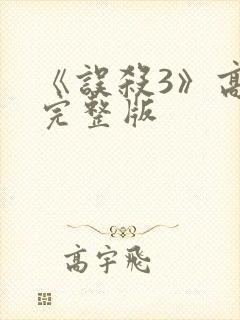 《誤殺3》高
完整版
高宇飛